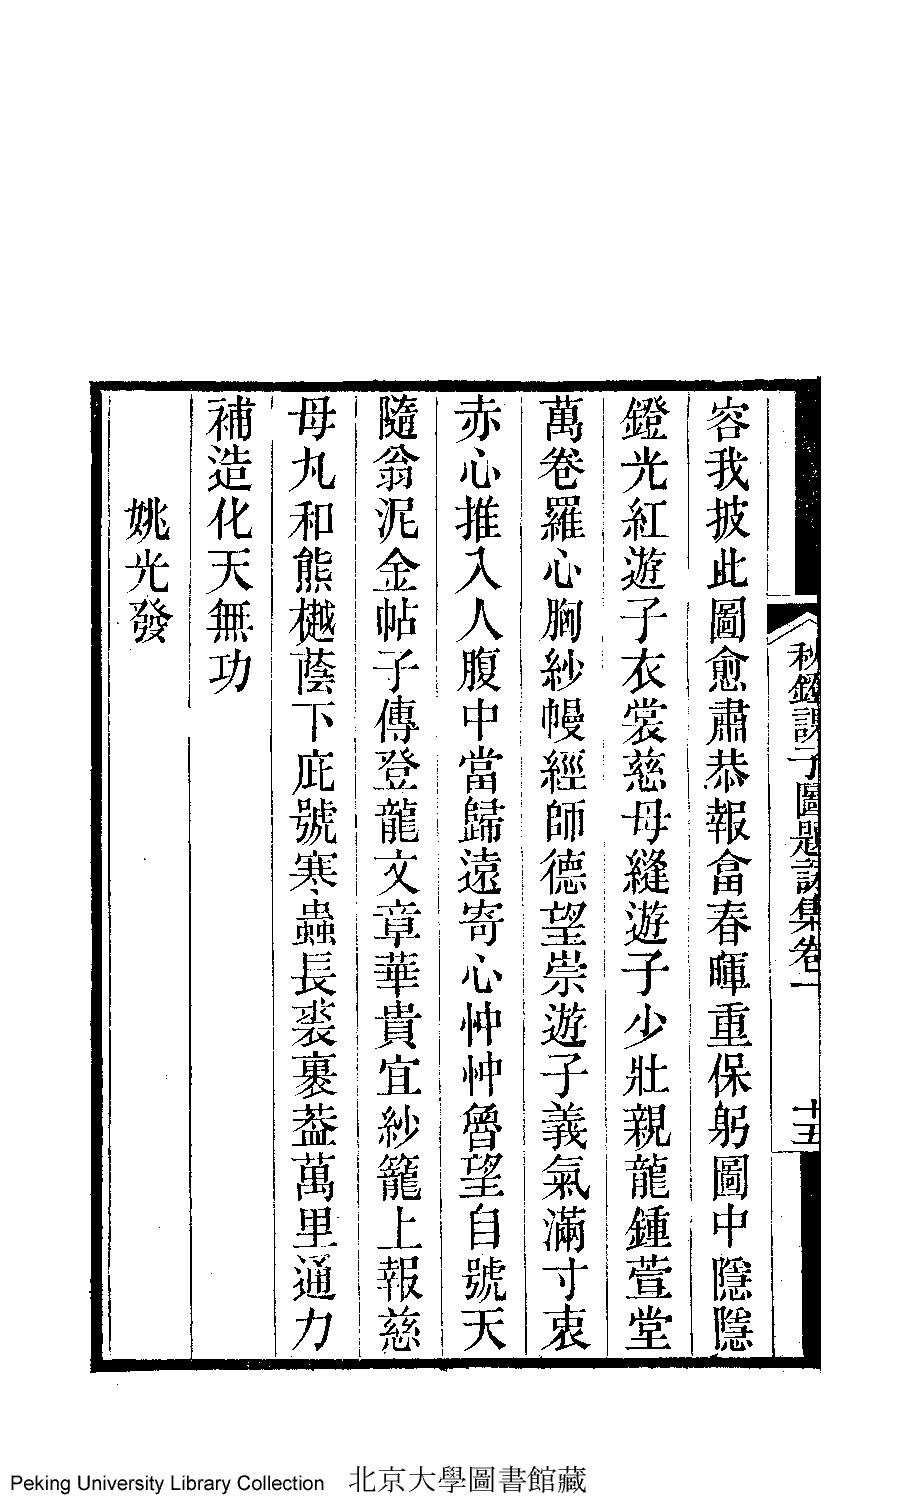 容我披此圖愈肅恭報畣春暉重保躬圖中隱隱
鐙光紅遊子衣裳慈母縫遊子少壯親龍鍾萱堂
萬卷羅心胸紗幔經師德望崇遊子義氣滿寸衷
赤心推入人腹中當歸遠寄心忡忡魯望自號天
隨翁泥金帖子傳登龍文章華貴宜紗籠上報慈
母丸和熊樾蔭下庇號寒蟲長裘裹葢萬里通力
補造化天無功
姚光發
秋鐙課子圖題詠集卷一
十五
Peking University Library Collection 北京大學圖書館藏